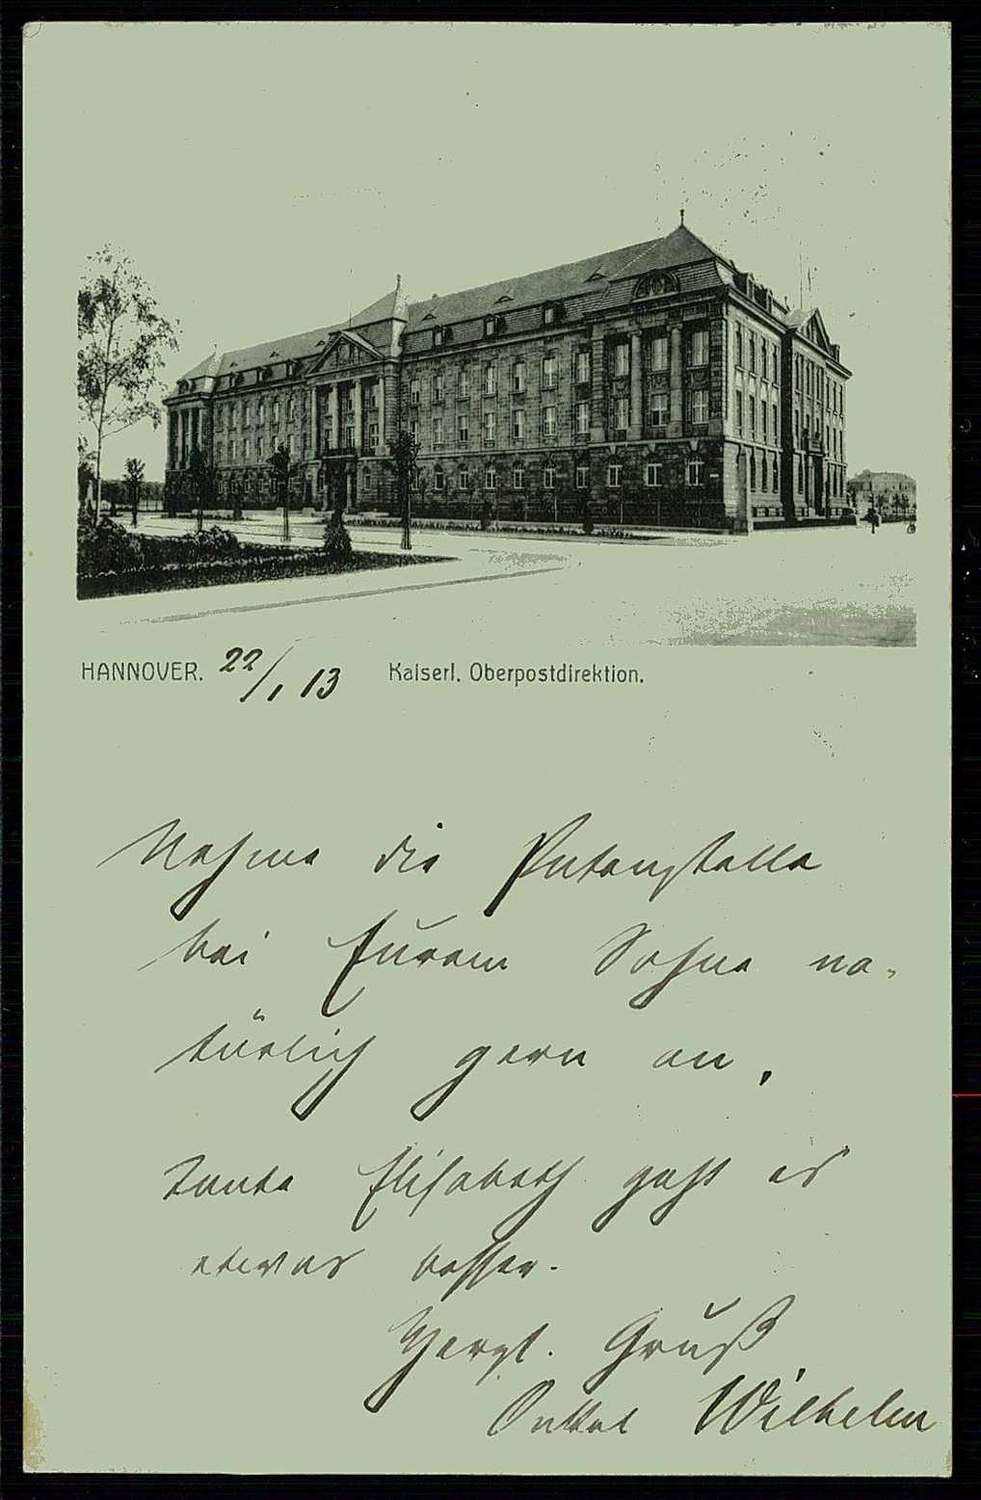 HANNOVER. 22/1 13 Kaiserl. Oberpostdirektion.
Nehme die Patenstelle
bei Eurem Sohne na-
türlich gern an.
Tante Elisabeth geht es
etwas besser.
Herzl. Gruß
Onkel Wilhelm